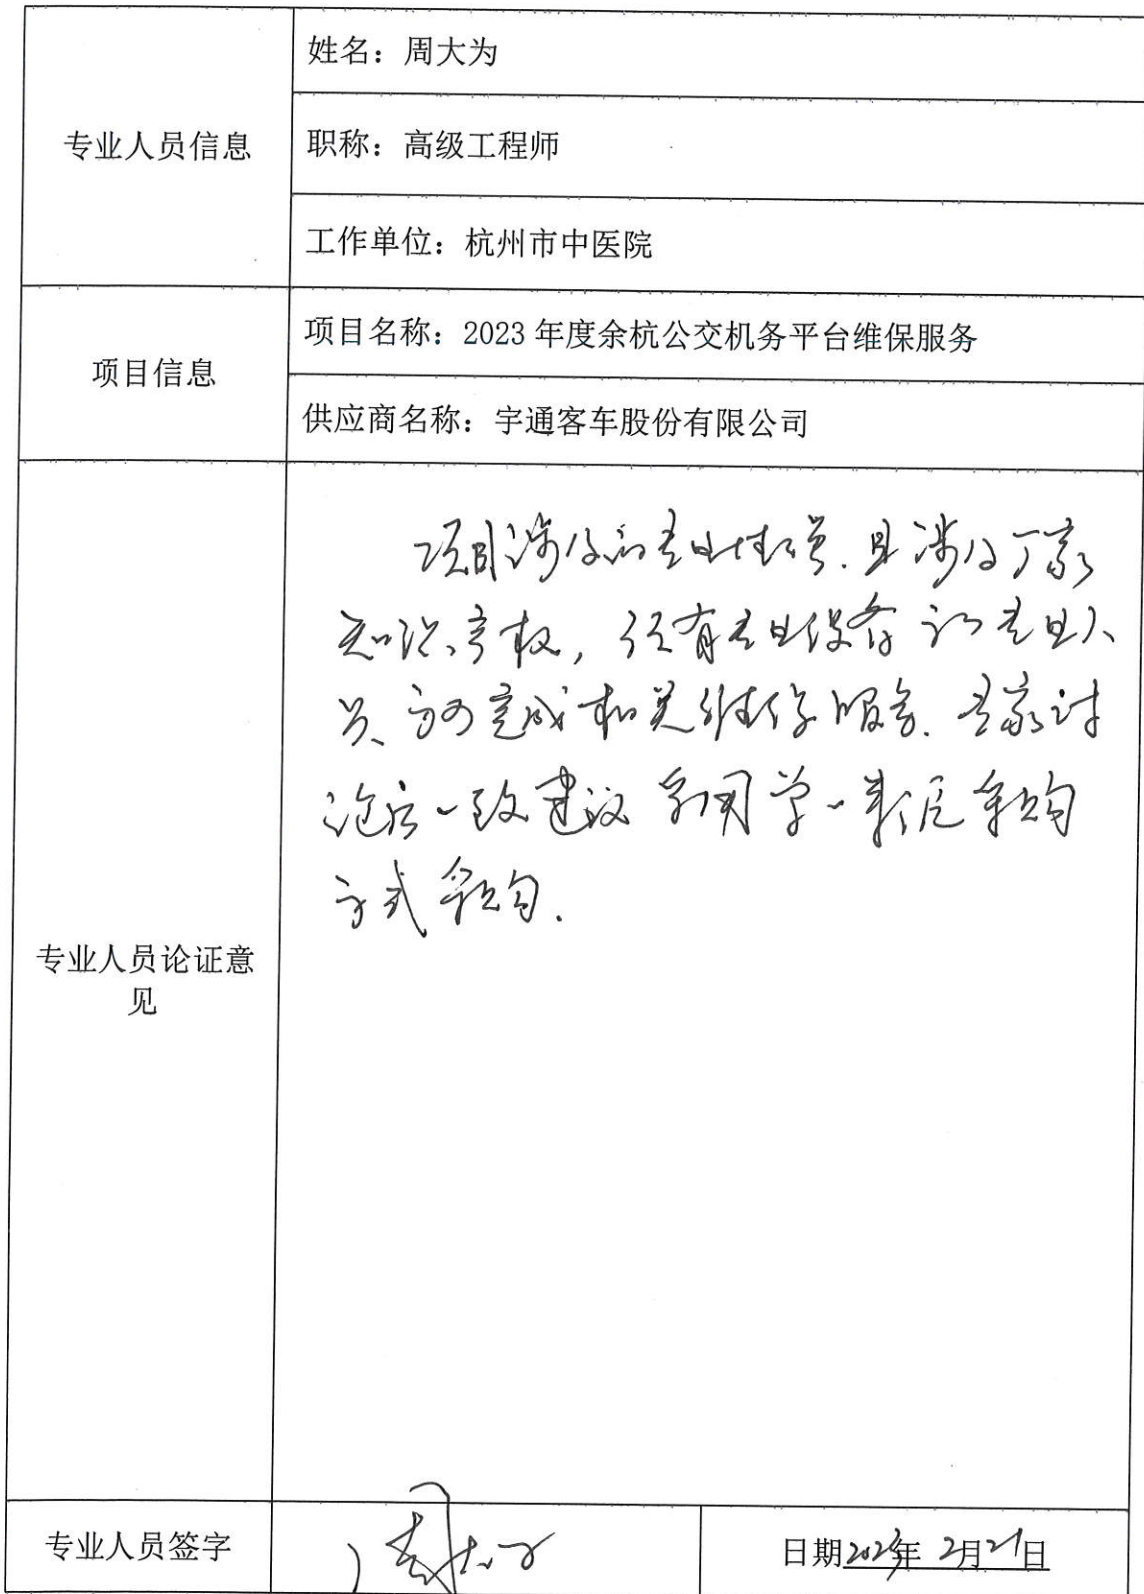 专业人员信息
姓名：周大为
职称：高级工程师
工作单位：杭州市中医院
项目信息
项目名称：2023年度余杭公交机务平台维保服务
供应商名称：宇通客车股份有限公司
专业人员论证意
见
项目涉及的专业性强.且涉及厂家
知识产权，须有专业设备和专业人
员、方可完成相关维保服务.专家讨
论后一致建议采用单一来源采购
方式采购.
专业人员签字
周大为
日期2023年 2月21日